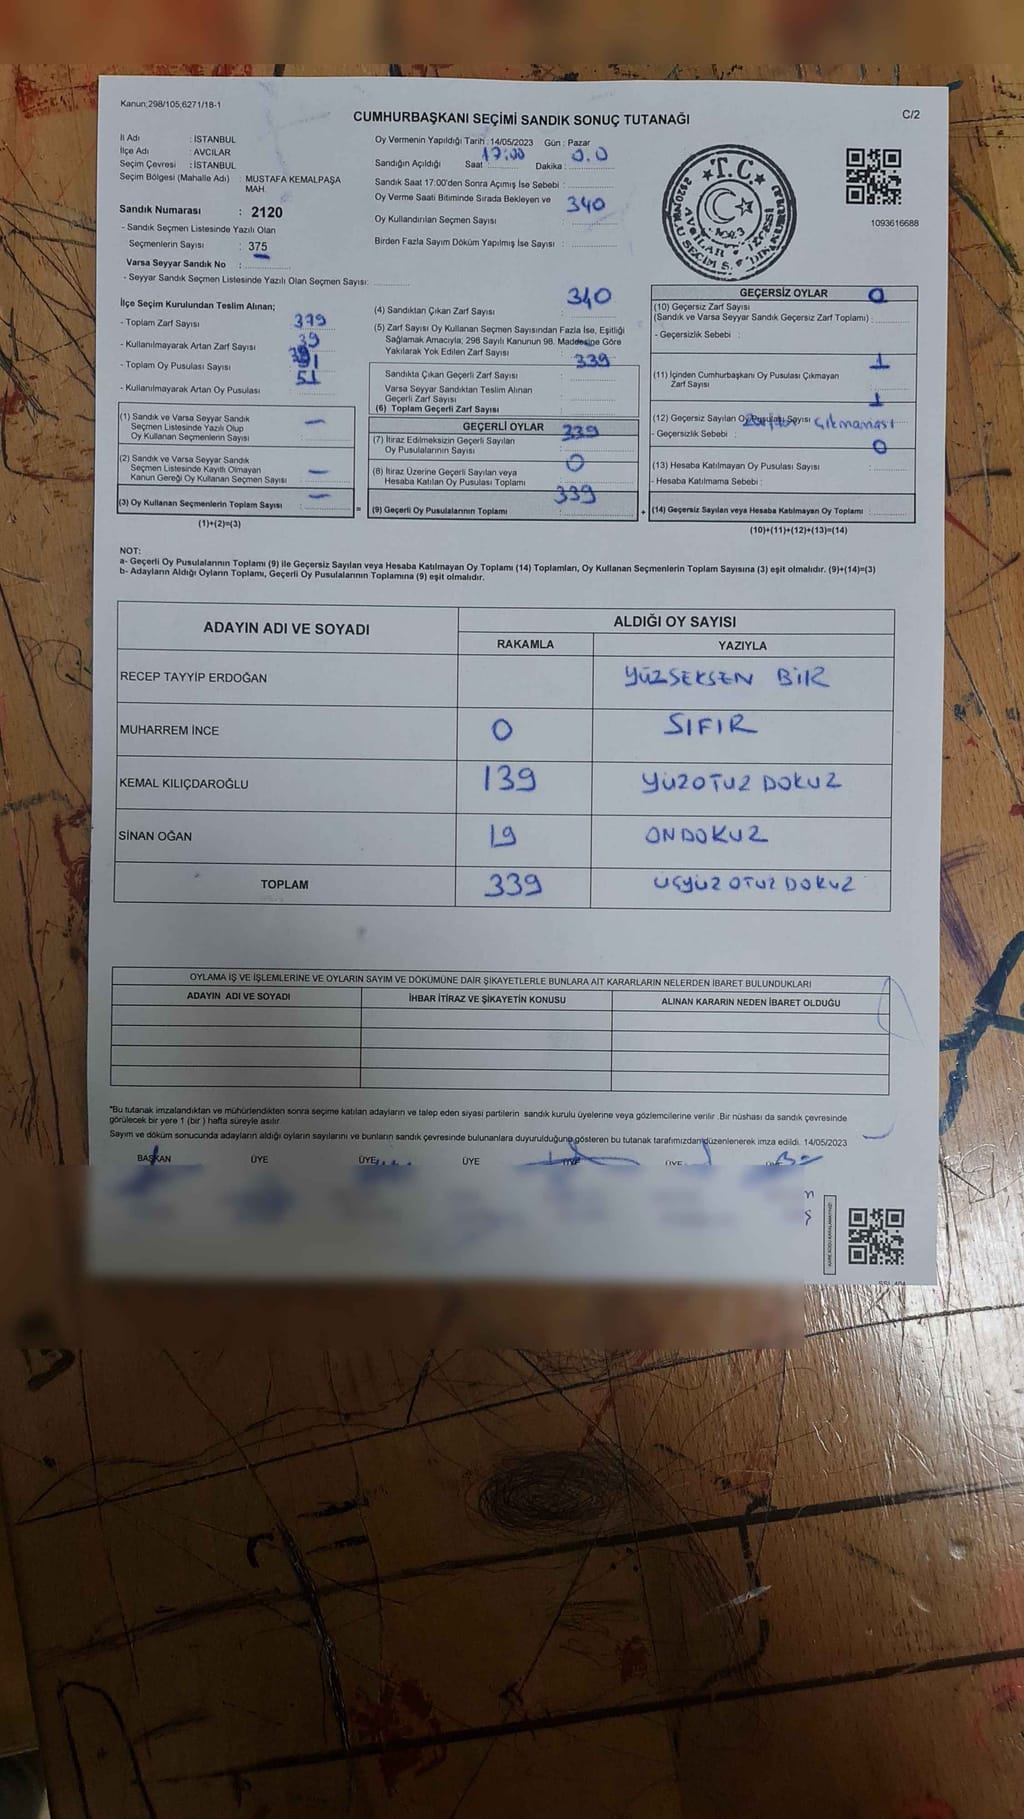 Kanun;298/105;6271/18-1
C/2
CUMHURBAŞKANI SEÇİMİ SANDIK SONUÇ TUTANAĞI
İl Adı : İSTANBUL
İlçe Adı : AVCILAR
Seçim Çevresi : İSTANBUL
Seçim Bölgesi (Mahalle Adı) : MUSTAFA KEMALPAŞA MAH.
Sandık Numarası : 2120
- Sandık Seçmen Listesinde Yazılı Olan
Seçmenlerin Sayısı : 375
Varsa Seyyar Sandık No :
- Seyyar Sandık Seçmen Listesinde Yazılı Olan Seçmen Sayısı:
Oy Vermenin Yapıldığı Tarih : 14/05/2023 Gün : Pazar
Sandığın Açıldığı Saat 17:00 Dakika : 0.0
Sandık Saat 17:00'den Sonra Açımış İse Sebebi :
Oy Verme Saati Bitiminde Sırada Bekleyen ve
Oy Kullandırılan Seçmen Sayısı : 340
Birden Fazla Sayım Döküm Yapılmış İse Sayısı :
T.C.
1093616688
İlçe Seçim Kurulundan Teslim Alınan;
- Toplam Zarf Sayısı 379
- Kullanılmayarak Artan Zarf Sayısı 39
- Toplam Oy Pusulası Sayısı
- Kullanılmayarak Artan Oy Pusulası 51
(1) Sandık ve Varsa Seyyar Sandık
Seçmen Listesinde Yazılı Olup
Oy Kullanan Seçmenlerin Sayısı : —
(2) Sandık ve Varsa Seyyar Sandık
Seçmen Listesinde Kayıtlı Olmayan
Kanun Gereği Oy Kullanan Seçmen Sayısı : —
(3) Oy Kullanan Seçmenlerin Toplam Sayısı : —
(1)+(2)=(3)
(4) Sandıktan Çıkan Zarf Sayısı : 340
(5) Zarf Sayısı Oy Kullanan Seçmen Sayısından Fazla İse, Eşitliği
Sağlamak Amacıyla; 298 Sayılı Kanunun 98. Maddesine Göre
Yakılarak Yok Edilen Zarf Sayısı :
339
Sandıkta Çıkan Geçerli Zarf Sayısı :
Varsa Seyyar Sandıktan Teslim Alınan
Geçerli Zarf Sayısı :
(6) Toplam Geçerli Zarf Sayısı
GEÇERLİ OYLAR
(7) İtiraz Edilmeksizin Geçerli Sayılan
Oy Pusulalarının Sayısı 339
(8) İtiraz Üzerine Geçerli Sayılan veya
Hesaba Katılan Oy Pusulası Toplamı 0
(9) Geçerli Oy Pusulalarının Toplamı 339
GEÇERSİZ OYLAR 0
(10) Geçersiz Zarf Sayısı
(Sandık ve Varsa Seyyar Sandık Geçersiz Zarf Toplamı) :
- Geçersizlik Sebebi :
(11) İçinden Cumhurbaşkanı Oy Pusulası Çıkmayan
Zarf Sayısı : 1
1
(12) Geçersiz Sayılan Oy Pusulası Sayısı
- Geçersizlik Sebebi : çıkmaması
0
(13) Hesaba Katılmayan Oy Pusulası Sayısı :
- Hesaba Katılmama Sebebi :
(14) Geçersiz Sayılan veya Hesaba Katılmayan Oy Toplamı :
(10)+(11)+(12)+(13)=(14)
NOT:
a- Geçerli Oy Pusulalarının Toplamı (9) ile Geçersiz Sayılan veya Hesaba Katılmayan Oy Toplamı (14) Toplamları, Oy Kullanan Seçmenlerin Toplam Sayısına (3) eşit olmalıdır. (9)+(14)=(3)
b- Adayların Aldığı Oyların Toplamı, Geçerli Oy Pusulalarının Toplamına (9) eşit olmalıdır.
ADAYIN ADI VE SOYADI ALDIĞI OY SAYISI
RAKAMLA YAZIYLA
RECEP TAYYİP ERDOĞAN YÜZSEKSEN BİR
MUHARREM İNCE 0 SIFIR
KEMAL KILIÇDAROĞLU 139 YÜZOTUZ DOKUZ
SİNAN OĞAN 19 ONDOKUZ
TOPLAM 339 ÜÇYÜZ OTUZ DOKUZ
OYLAMA İŞ VE İŞLEMLERİNE VE OYLARIN SAYIM VE DÖKÜMÜNE DAİR ŞİKAYETLERLE BUNLARA AİT KARARLARIN NELERDEN İBARET BULUNDUKLARI
ADAYIN ADI VE SOYADI İHBAR İTİRAZ VE ŞİKAYETİN KONUSU ALINAN KARARIN NEDEN İBARET OLDUĞU
*Bu tutanak imzalandıktan ve mühürlendikten sonra seçime katılan adayların ve talep eden siyasi partilerin sandık kurulu üyelerine veya gözlemcilerine verilir .Bir nüshası da sandık çevresinde
görülecek bir yere 1 (bir ) hafta süreyle asılır.
Sayım ve döküm sonucunda adayların aldığı oyların sayılarını ve bunların sandık çevresinde bulunanlara duyurulduğunu gösteren bu tutanak tarafımızdan düzenlenerek imza edildi. 14/05/2023
BAŞKAN ÜYE ÜYE ÜYE ÜYE ÜYE ÜYE